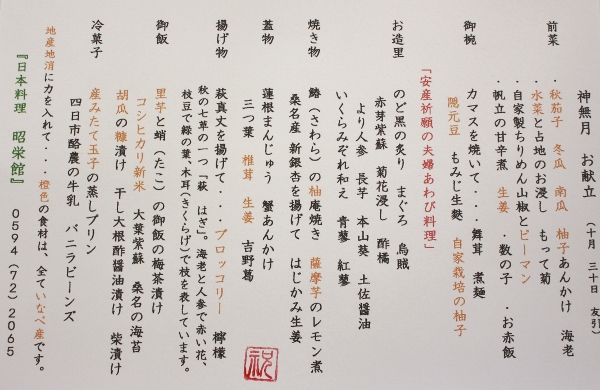 神無月　お献立
（十月　三十日　友引）
前菜
・秋茄子　冬瓜　南瓜　柚子あんかけ　海老
・水菜と占地のお浸し　もって菊
・自家製ちりめん山椒とピーマン
・帆立の甘辛煮　生姜　・数の子　・お赤飯
御椀
カマスを焼いて・・　舞茸　煮麺
隠元豆　もみじ生麩　自家栽培の柚子
「安産祈願の夫婦あわび料理」
お造里
のど黒の炙り　まぐろ　烏賊
赤芽紫蘇　菊花浸し　酢橘
より人参　長芋　本山葵　土佐醤油
いくらみぞれ和え　青蓼　紅蓼
焼き物
鰆（さわら）の柚庵焼き　薩摩芋のレモン煮
桑名産　新銀杏を揚げて　はじかみ生姜
蓋物
蓮根まんじゅう　蟹あんかけ
三つ葉　椎茸　生姜　吉野葛
揚げ物
萩真丈を揚げて・・・ブロッコリー　檸檬
秋の七草の一つ「萩　はぎ」。海老と人参で赤い花、
枝豆で緑の葉、木耳（きくらげ）で枝を表しています。
御飯
里芋と蛸（たこ）の御飯の梅茶漬け
コシヒカリ新米　大葉紫蘇　桑名の海苔
胡瓜の糠漬け　干し大根酢醤油漬け　柴漬け
冷菓子
産みたて玉子の蒸しプリン
四日市酪農の牛乳　バニラビーンズ
地産地消に力を入れて・・・橙色の食材は、全ていなべ産です。
『日本料理　昭栄館』　０５９４（７２）２０６５
祝